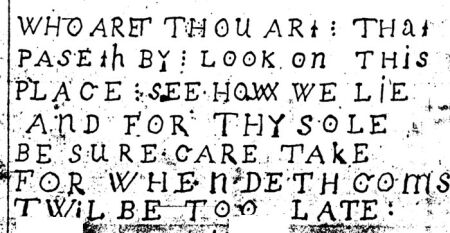 WHO ARET THOU ARt : THat
PASEth BY : LOOK on THis
PLACE : SEE HOW WE LiE
AnD FOR THY SOLE
BE SURE CARE TAKE
FOR WHEN DETH COMS
TWiL BE TOO LATE :